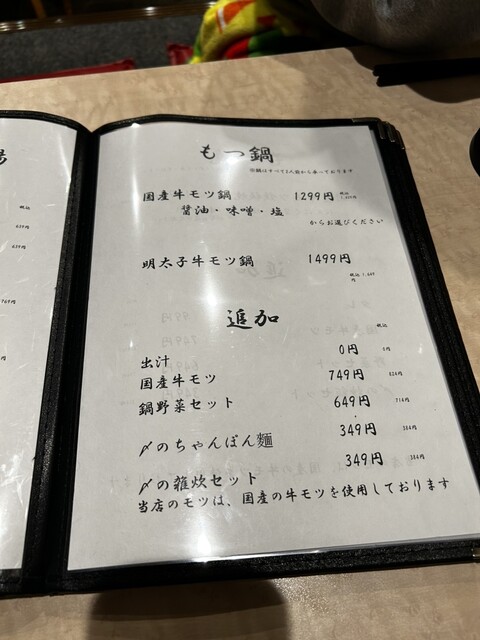 もつ鍋
※鍋はすべて1人前から承っております
国産牛モツ鍋 1299円 税込
醤油・味噌・塩
からお選びください
明太子牛モツ鍋 1499円
税込
円
追加
税込
出汁 0円 0円
国産牛モツ 749円 824円
鍋野菜セット 649円 714円
〆のちゃんぽん麺 349円 384円
〆の雑炊セット 349円 384円
当店のモツは、国産の牛モツを使用しております
639円
639円
769円